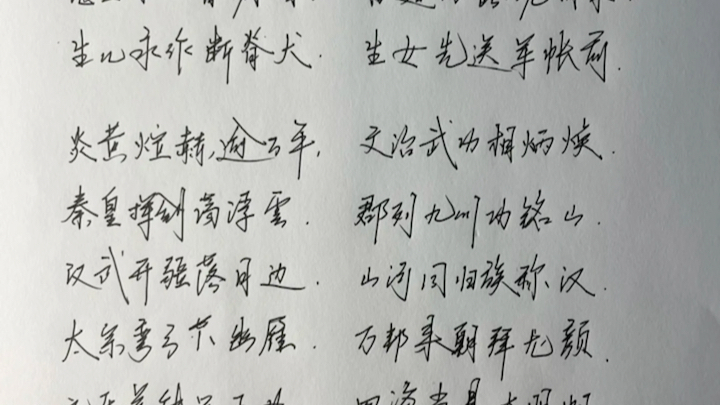 生儿永作断脊犬. 生女先送军帐前.
炎黄煊赫,逾万年, 文治武功相炳焕.
秦皇挥剑荡浮云. 郡列九州功铭山.
汉武开疆落日边. 山河同归族称汉.
太宗弯弓下幽雁. 万邦来朝拜龙颜.